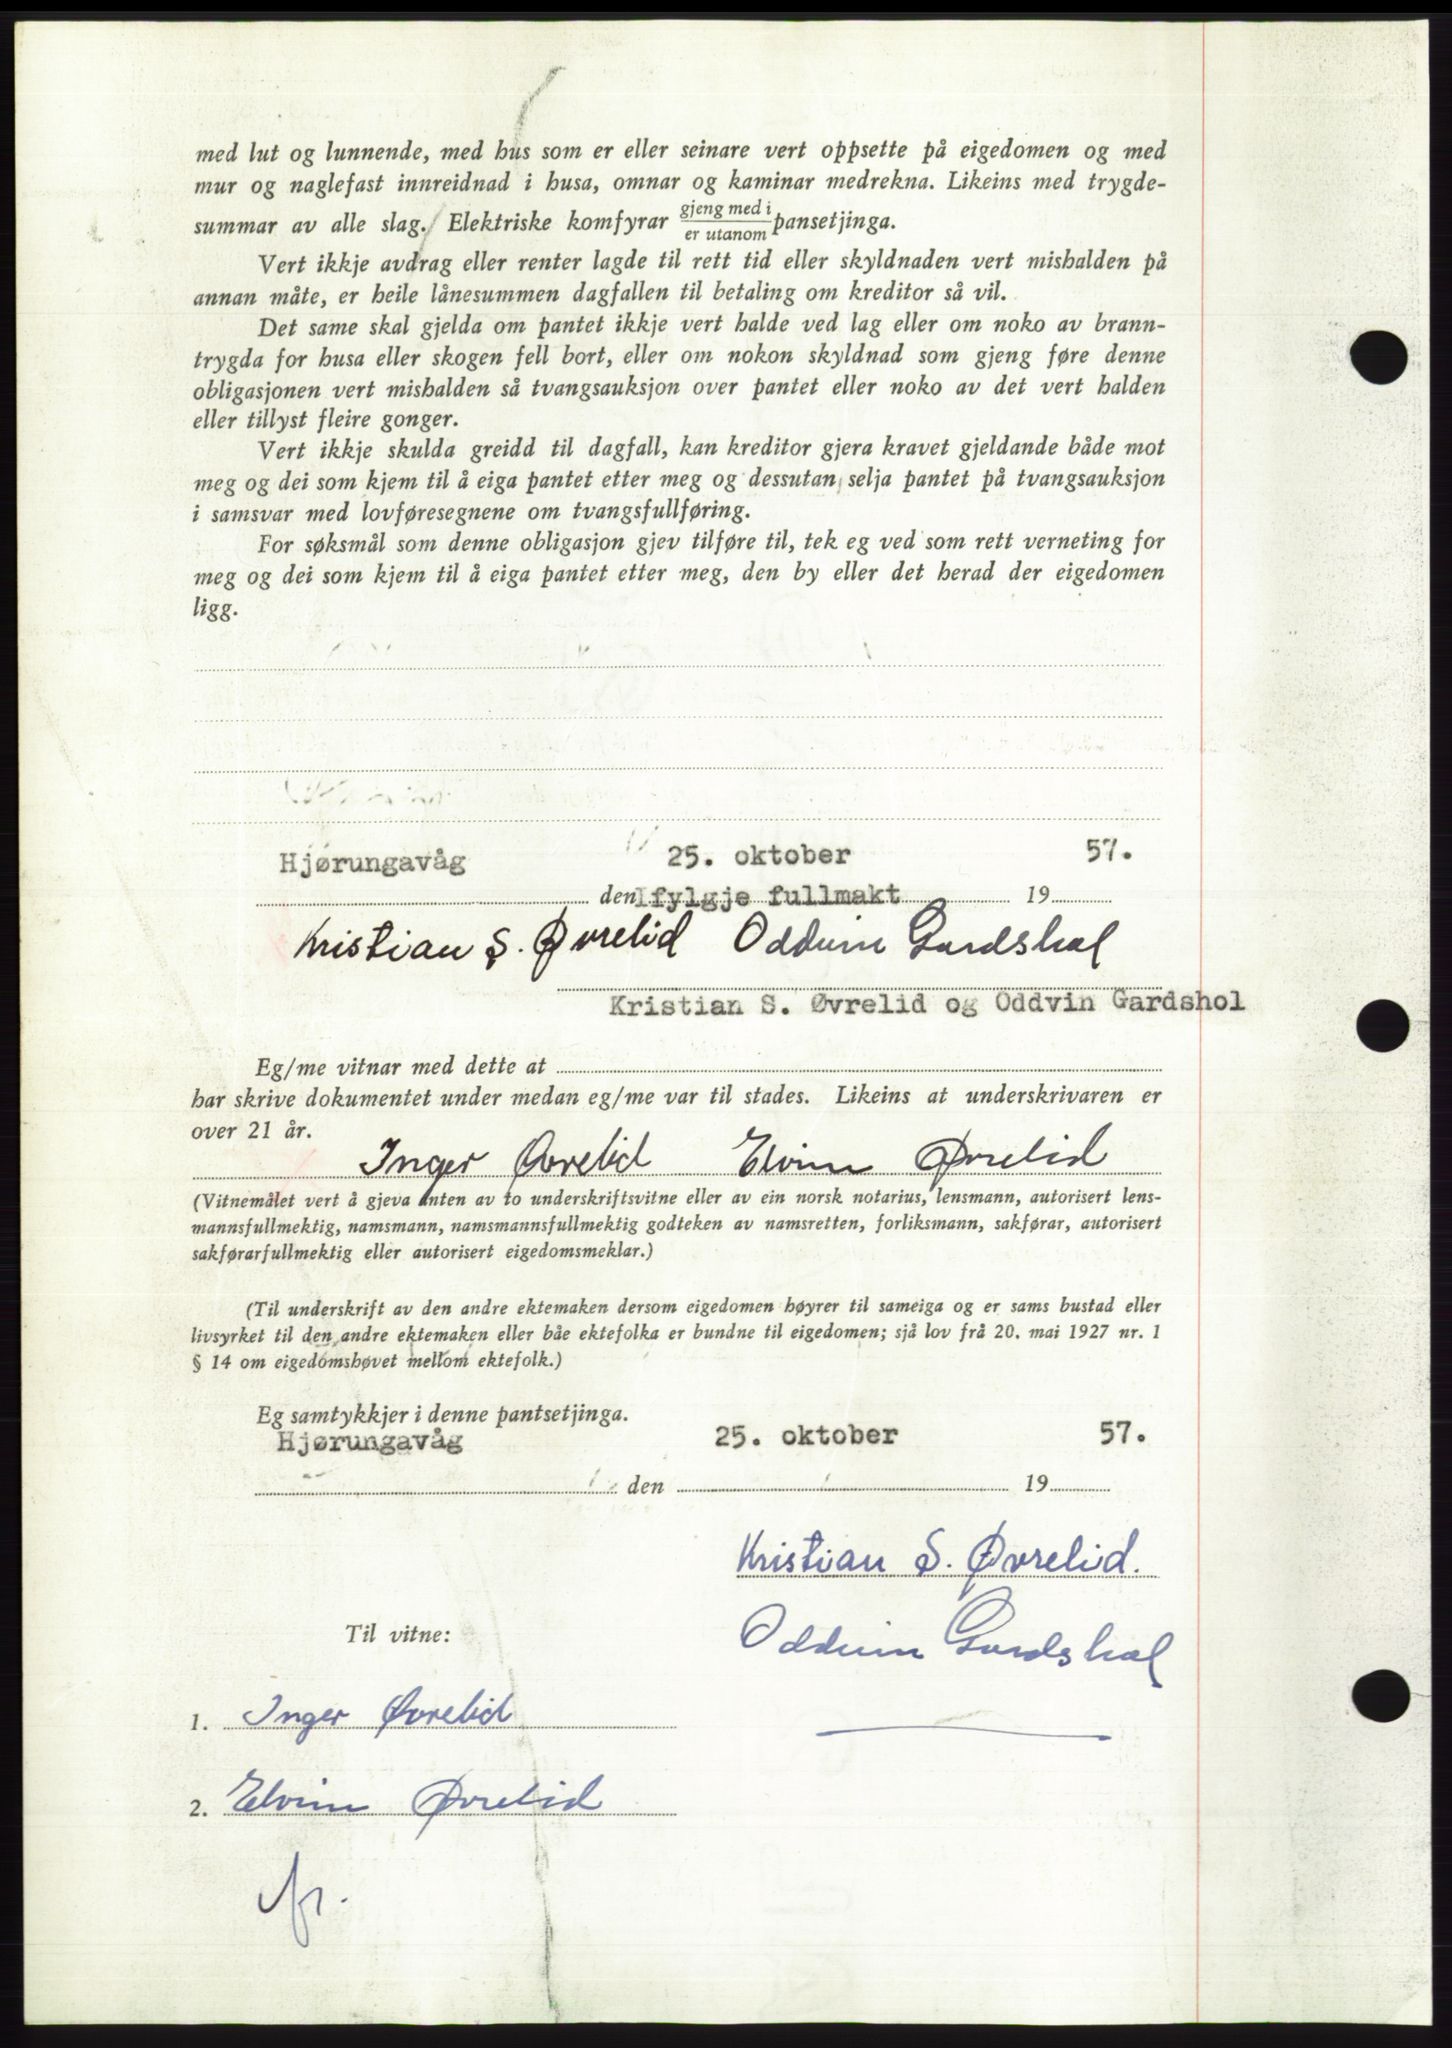 med lut og lunnende, med hus som er eller seinare vert oppsette på eigedomen og med
mur og naglefast innreidnad i husa, omnar og kaminar medrekna. Likeins med trygde-
summar av alle slag. Elektriske komfyrar gjeng med i / er utanom pansetjinga.
Vert ikkje avdrag eller renter lagde til rett tid eller skyldnaden vert mishalden på
annan måte, er heile lånesummen dagfallen til betaling om kreditor så vil.
Det same skal gjelda om pantet ikkje vert halde ved lag eller om noko av brann-
trygda for husa eller skogen fell bort, eller om nokon skyldnad som gjeng føre denne
obligasjonen vert mishalden så tvangsauksjon over pantet eller noko av det vert halden
eller tillyst fleire gonger.
Vert ikkje skulda greidd til dagfall, kan kreditor gjera kravet gjeldande både mot
meg og dei som kjem til å eiga pantet etter meg og dessutan selja pantet på tvangsauksjon
i samsvar med lovføresegnene om tvangsfullføring.
For søksmål som denne obligasjon gjev tilføre til, tek eg ved som rett verneting for
meg og dei som kjem til å eiga pantet etter meg, den by eller det herad der eigedomen
ligg.
Hjørungavåg 25. oktober 57.
den Ifylgje fullmakt 19
Kristian S. Øvrelid Oddvin Gardshol
Kristian S. Øvrelid og Oddvin Gardshol
Eg/me vitnar med dette at
har skrive dokumentet under medan eg/me var til stades. Likeins at underskrivaren er
over 21 år.
Inger Øvrelid Elvim Øvrelid
(Vitnemålet vert å gjeva anten av to underskriftsvitne eller av ein norsk notarius, lensmann, autorisert lens-
mannsfullmektig, namsmann, namsmannsfullmektig godteken av namsretten, forliksmann, sakførar, autorisert
sakførarfullmektig eller autorisert eigedomsmeklar.)
(Til underskrift av den andre ektemaken dersom eigedomen høyrer til sameiga og er sams bustad eller
livsyrket til den andre ektemaken eller båe ektefolka er bundne til eigedomen; sjå lov frå 20. mai 1927 nr. 1
§ 14 om eigedomshøvet mellom ektefolk.)
Eg samtykkjer i denne pantsetjinga.
Hjørungavåg 25. oktober 57.
den 19
Kristian S. Øvrelid.
Til vitne:
Oddvin Gardshol
1. Inger Øvrelid
2. Elvim Øvrelid